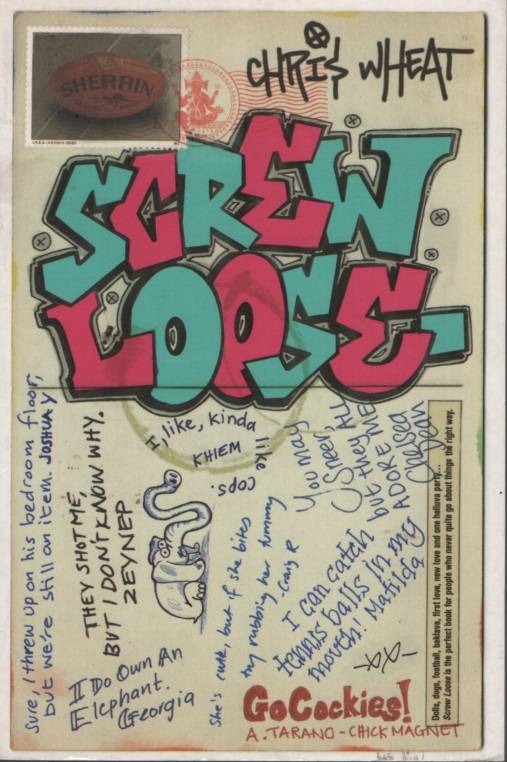 SHERRIN
CHRIS WHEAT
SCREW
LOOSE
Sure, I threw up on his bedroom floor,
but we're still an item. JOSHUA Y
THEY SHOT ME,
BUT I DON'T KNOW WHY.
ZEYNEP
I, like, kinda
like
cops.
KHIEM
You may
Sneer,
but they ALL
ADORE ME
Chelsea
Dean
I Do Own An
Elephant.
Georgia
She's cute, but if she bites
try rubbing her tummy
Craig R
I can catch
tennis balls in my
mouth! Matilda
Go Cockies!
A. TARANO - CHICK MAGNET
Dolls, dogs, football, baklava, first love, new love and one helluva party...
Screw Loose is the perfect book for people who never quite go about things the right way.